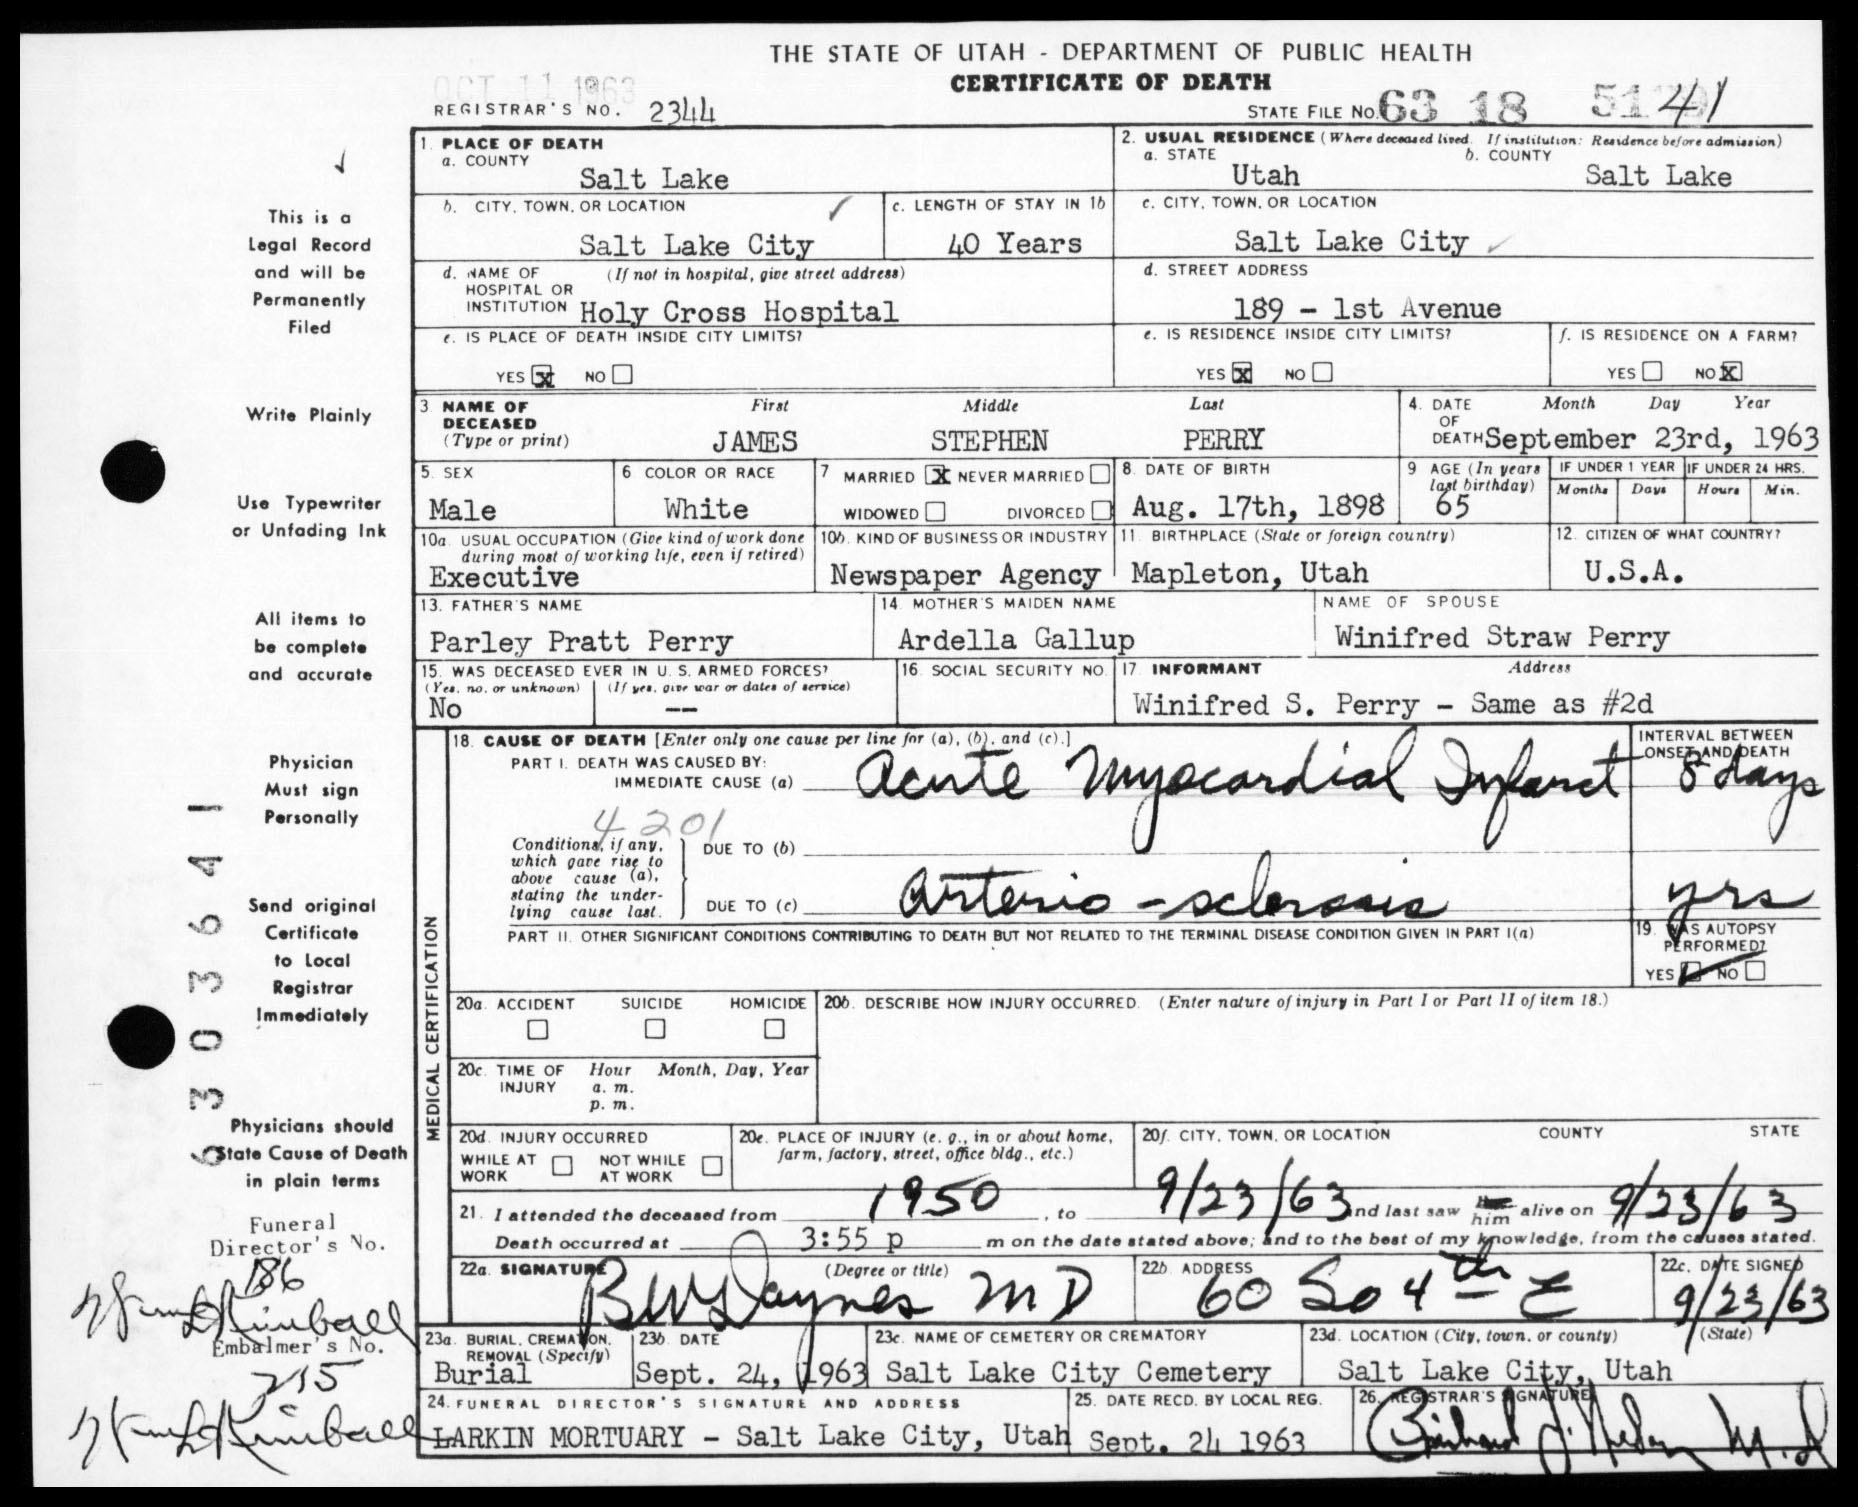 THE STATE OF UTAH - DEPARTMENT OF PUBLIC HEALTH
CERTIFICATE OF DEATH
OCT 11 1963
REGISTRAR'S NO. 2344
STATE FILE NO. 63 18 41
This is a
Legal Record
and will be
Permanently
Filed
Write Plainly
Use Typewriter
or Unfading Ink
All items to
be complete
and accurate
Physician
Must sign
Personally
Send original
Certificate
to Local
Registrar
Immediately
Physicians should
State Cause of Death
in plain terms
Funeral
Director's No.
186
Kimball
Embalmer's No.
215
Kimball
6303641
1. PLACE OF DEATH
a. COUNTY
Salt Lake
2. USUAL RESIDENCE (Where deceased lived. If institution: Residence before admission)
a. STATE b. COUNTY
Utah Salt Lake
b. CITY, TOWN, OR LOCATION
Salt Lake City
c. LENGTH OF STAY IN 1b
40 Years
c. CITY, TOWN, OR LOCATION
Salt Lake City
d. NAME OF (If not in hospital, give street address)
HOSPITAL OR
INSTITUTION Holy Cross Hospital
d. STREET ADDRESS
189 - 1st Avenue
e. IS PLACE OF DEATH INSIDE CITY LIMITS?
YES X NO
e. IS RESIDENCE INSIDE CITY LIMITS?
YES X NO
f. IS RESIDENCE ON A FARM?
YES NO X
3. NAME OF First Middle Last
DECEASED
(Type or print) JAMES STEPHEN PERRY
4. DATE Month Day Year
OF
DEATH September 23rd, 1963
5. SEX
Male
6 COLOR OR RACE
White
7 MARRIED X NEVER MARRIED
WIDOWED DIVORCED
8. DATE OF BIRTH
Aug. 17th, 1898
9 AGE (In years
last birthday)
65
IF UNDER 1 YEAR IF UNDER 24 HRS.
Months Days Hours Min.
10a. USUAL OCCUPATION (Give kind of work done
during most of working life, even if retired)
Executive
10b. KIND OF BUSINESS OR INDUSTRY
Newspaper Agency
11. BIRTHPLACE (State or foreign country)
Mapleton, Utah
12. CITIZEN OF WHAT COUNTRY?
U.S.A.
13. FATHER'S NAME
Parley Pratt Perry
14. MOTHER'S MAIDEN NAME
Ardella Gallup
NAME OF SPOUSE
Winifred Straw Perry
15. WAS DECEASED EVER IN U. S. ARMED FORCES?
(Yes, no, or unknown) (If yes, give war or dates of service)
No --
16. SOCIAL SECURITY NO.
17. INFORMANT Address
Winifred S. Perry - Same as #2d
MEDICAL CERTIFICATION
18. CAUSE OF DEATH [Enter only one cause per line for (a), (b), and (c).]
PART I. DEATH WAS CAUSED BY:
IMMEDIATE CAUSE (a) Acute Myocardial Infarct
INTERVAL BETWEEN
ONSET AND DEATH
8 days
4201
Conditions, if any,
which gave rise to
above cause (a),
stating the under-
lying cause last.
DUE TO (b)
DUE TO (c) Arterio-sclerosis
yrs
PART II. OTHER SIGNIFICANT CONDITIONS CONTRIBUTING TO DEATH BUT NOT RELATED TO THE TERMINAL DISEASE CONDITION GIVEN IN PART I(a)
19. WAS AUTOPSY
PERFORMED?
YES NO
20a. ACCIDENT SUICIDE HOMICIDE
20b. DESCRIBE HOW INJURY OCCURRED. (Enter nature of injury in Part I or Part II of item 18.)
20c. TIME OF Hour Month, Day, Year
INJURY a. m.
p. m.
20d. INJURY OCCURRED
WHILE AT NOT WHILE
WORK AT WORK
20e. PLACE OF INJURY (e. g., in or about home,
farm, factory, street, office bldg., etc.)
20f. CITY, TOWN, OR LOCATION COUNTY STATE
21. I attended the deceased from 1950, to 9/23/63 and last saw him alive on 9/23/63
Death occurred at 3:55 p m on the date stated above; and to the best of my knowledge, from the causes stated.
22a. SIGNATURE (Degree or title)
MD
22b. ADDRESS
60 So 4th E
22c. DATE SIGNED
9/23/63
23a. BURIAL, CREMATION,
REMOVAL (Specify)
Burial
23b. DATE
Sept. 24, 1963
23c. NAME OF CEMETERY OR CREMATORY
Salt Lake City Cemetery
23d. LOCATION (City, town, or county) (State)
Salt Lake City, Utah
24. FUNERAL DIRECTOR'S SIGNATURE AND ADDRESS
LARKIN MORTUARY - Salt Lake City, Utah
25. DATE RECD. BY LOCAL REG.
Sept. 24 1963
26. REGISTRAR'S SIGNATURE
M.D